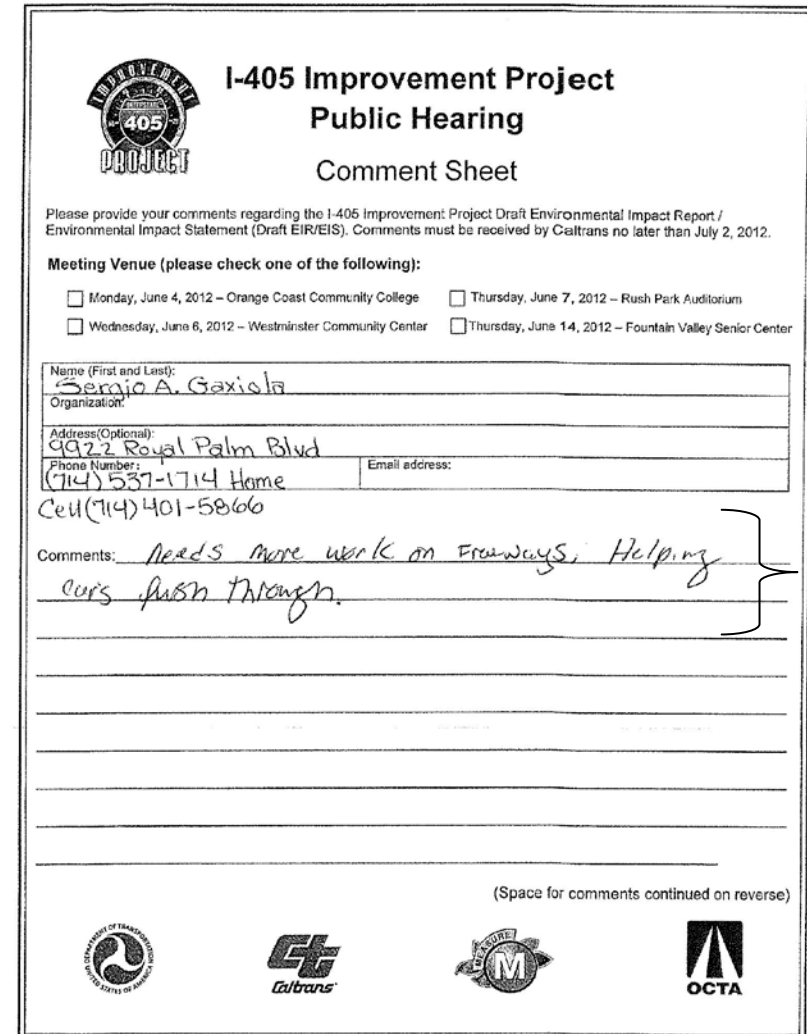 IMPROVEMENT
INTERSTATE
405
PROJECT
I-405 Improvement Project
Public Hearing
Comment Sheet
Please provide your comments regarding the I-405 Improvement Project Draft Environmental Impact Report /
Environmental Impact Statement (Draft EIR/EIS). Comments must be received by Caltrans no later than July 2, 2012.
Meeting Venue (please check one of the following):
Monday, June 4, 2012 – Orange Coast Community College
Thursday, June 7, 2012 – Rush Park Auditorium
Wednesday, June 6, 2012 – Westminster Community Center
Thursday, June 14, 2012 – Fountain Valley Senior Center
Name (First and Last):
Sergio A. Gaxiola
Organization:
Address(Optional):
9922 Royal Palm Blvd
Phone Number:
(714) 537-1714 Home
Email address:
Cell (714) 401-5866
Comments: Needs more work on Freeways, Helping
cars push through.
(Space for comments continued on reverse)
DEPARTMENT OF TRANSPORTATION
UNITED STATES OF AMERICA
Caltrans
MEASURE
M
OCTA